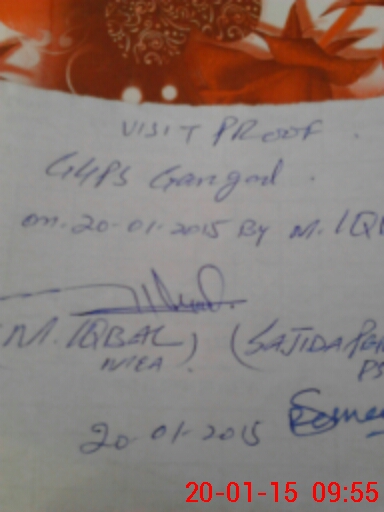 VISIT PROOF.
GGPS Gangod.
on. 20-01-2015 By M. IQ
(M. IQBAL) (SAJIDA
MEA PS
20-01-2015
20-01-15 09:55